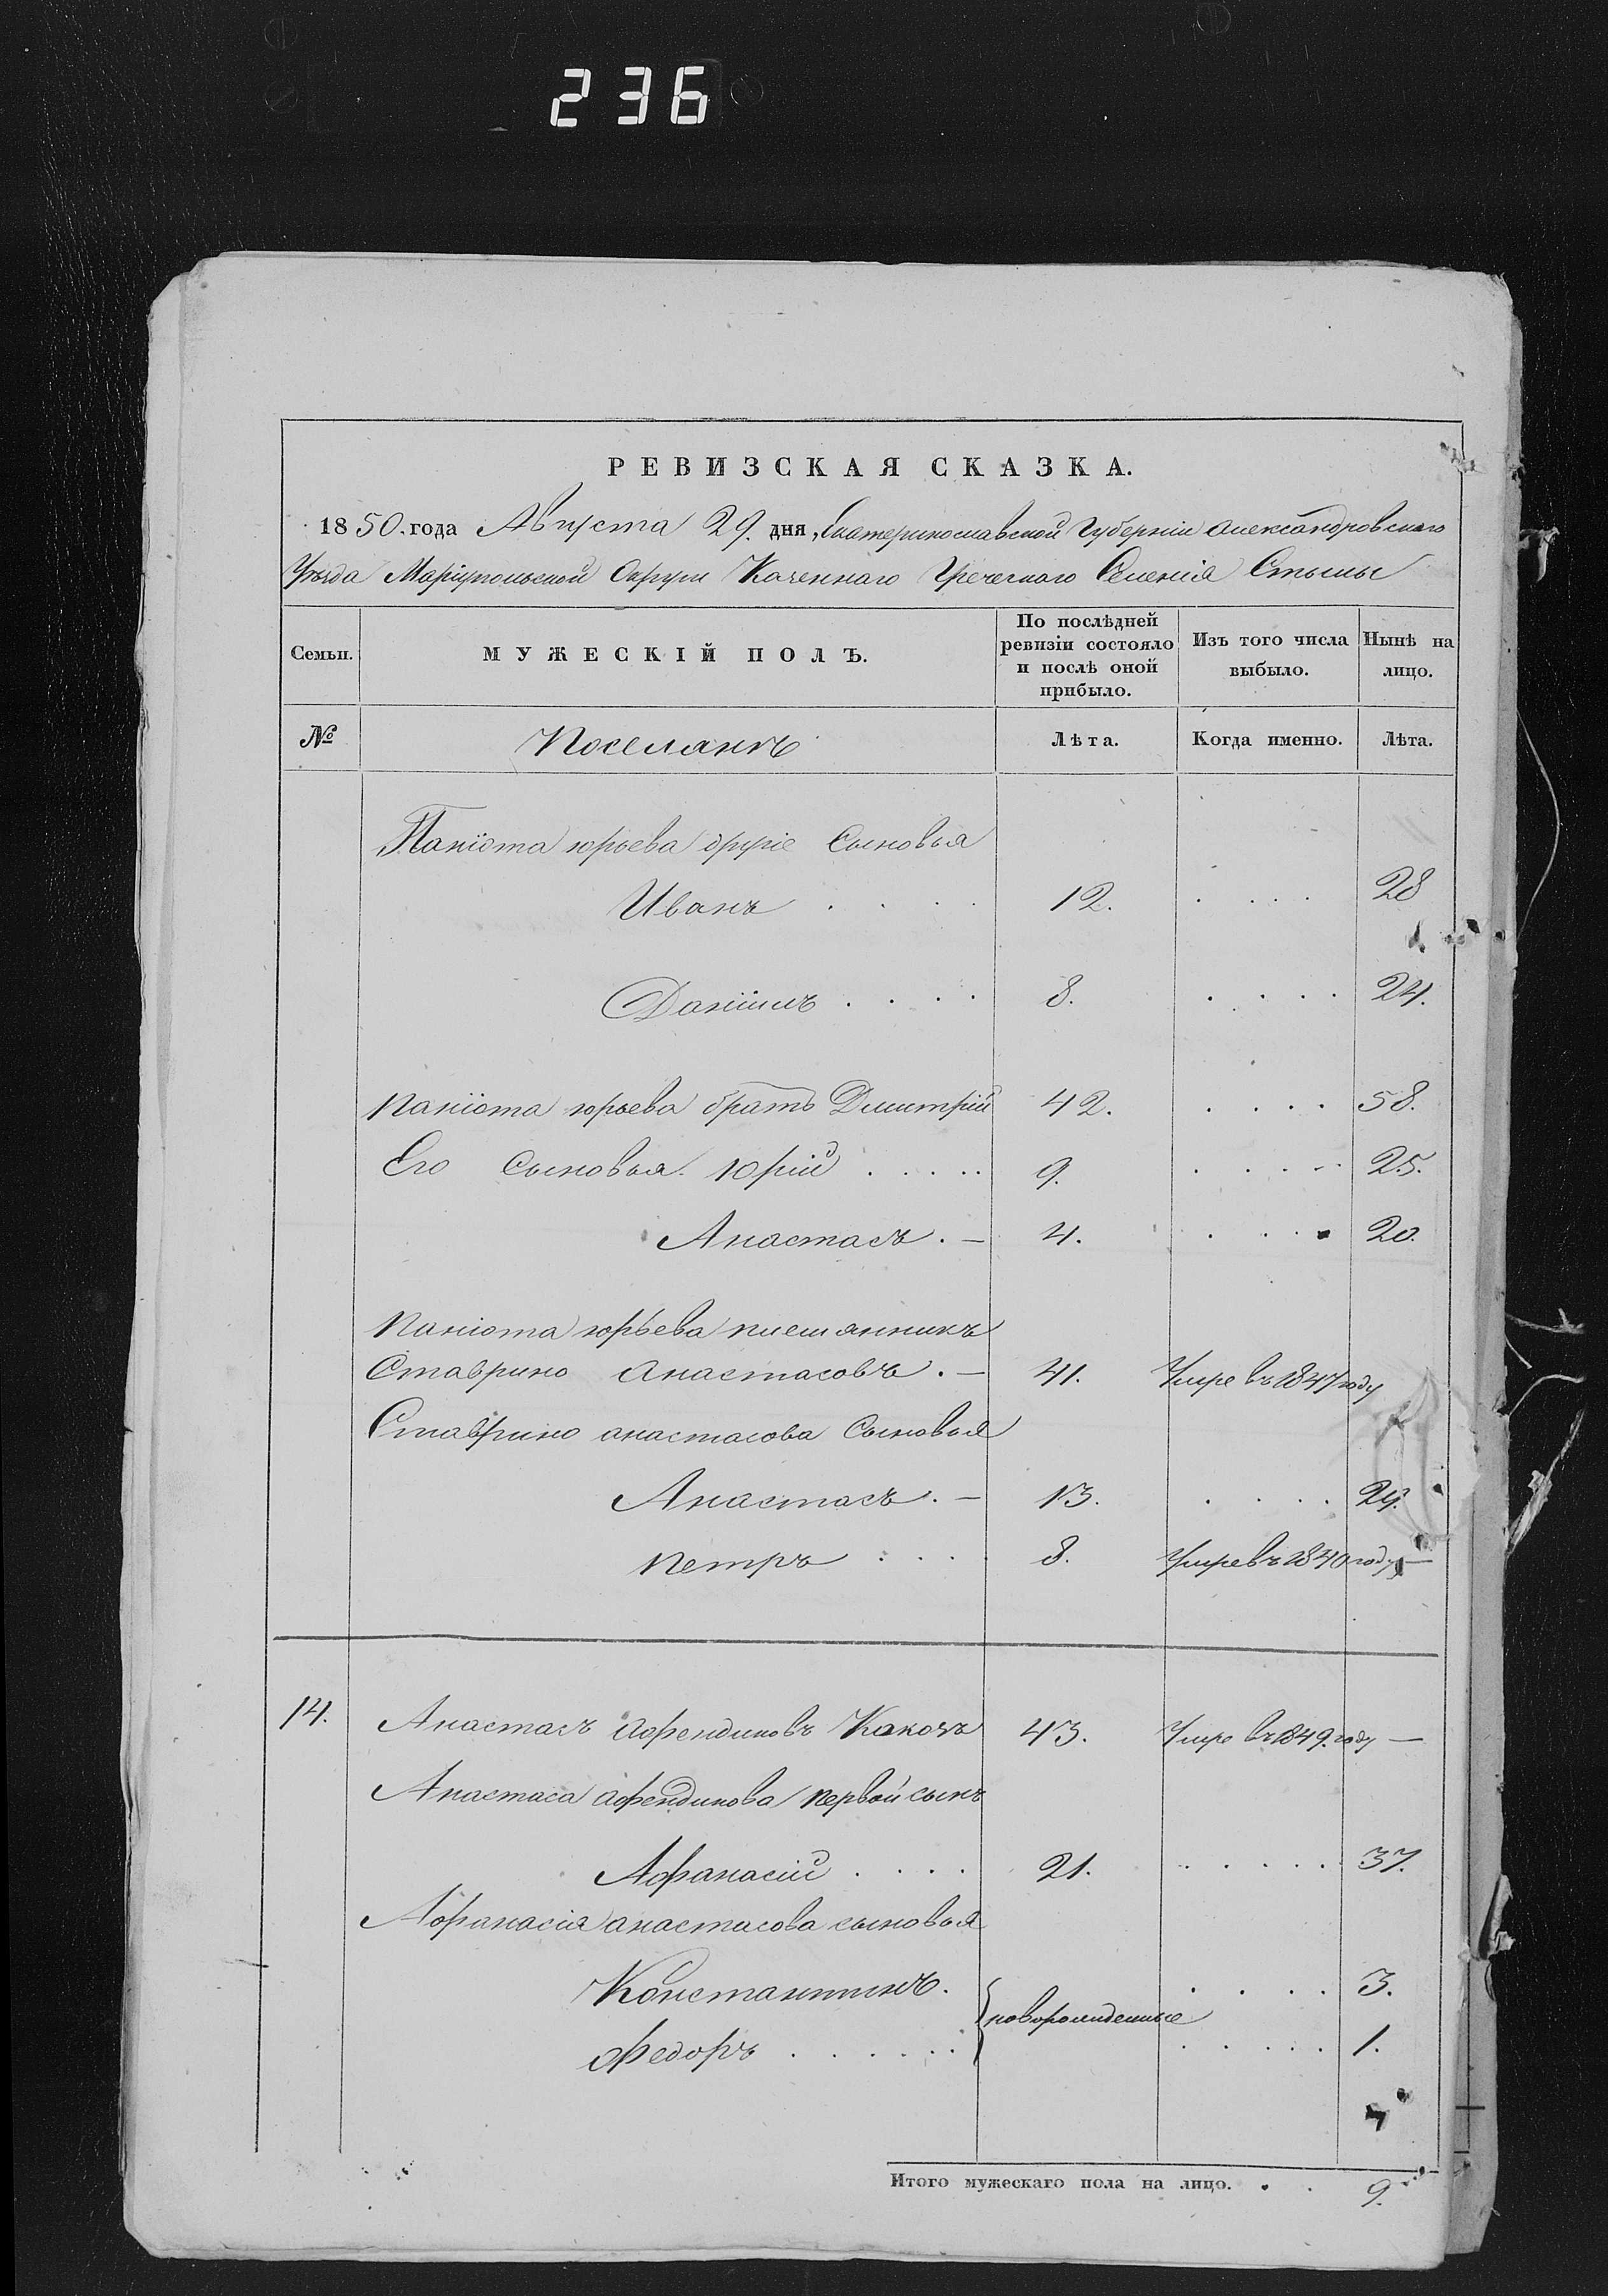 236
РЕВИЗСКАЯ СКАЗКА.
1850. года Августа 29. дня, Екатеринославской Губерніи Александровскаго
Уѣзда Маріупольской Округи Казеннаго Греческаго Селенія Стылы
Семьи. МУЖЕСКІЙ ПОЛЪ. По послѣдней ревизіи состояло и послѣ оной прибыло. Изъ того числа выбыло. Нынѣ на лицо.
№ Поселянъ Лѣта. Когда именно. Лѣта.
Паніота юрьева другіе Сыновья
Иванъ . . . . 12. . . . . 28
Даніилъ . . . . 8. . . . . 24.
Паніота юрьева братъ Дмитрій 42. . . . . 58.
Его Сыновья. Юрій . . . . 9. . . . . 25.
Анастасъ . — 4. . . . . 20.
Паніота юрьева племянникъ
Ставрино Анастасовъ . — 41. Умре въ 1847 году
Ставрино анастасова Сыновья
Анастасъ . — 13. . . . . 29.
Петръ . . . . 8. Умре въ 1840 году —
14. Анастасъ Афендиковъ 43. Умре въ 1849. году —
Анастаса Афендикова первой сынъ
Афанасій . . . . 21. . . . . . 37.
Афанасія анастасова сыновья
Константинъ. . . . . 3.
новорожденные
Федоръ . . . . . . . . . . . 1.
Итого мужескаго пола на лицо. . . 9.